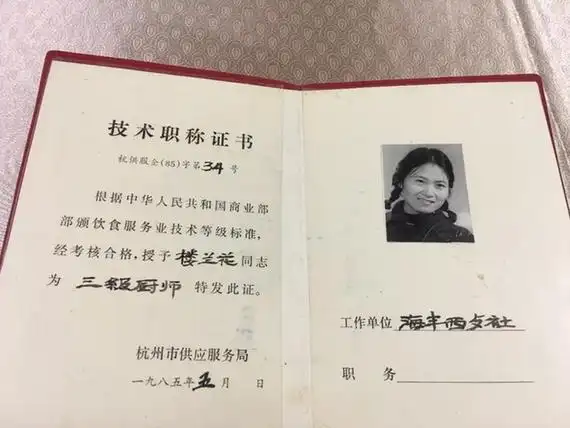 技术职称证书
杭供服企(85)字第34号
根据中华人民共和国商业部
部颁饮食服务业技术等级标准，
经考核合格，授予楼兰花同志
为 三级厨师 特发此证。
杭州市供应服务局
一九八五年五月 日
工作单位 海丰西点社
职 务